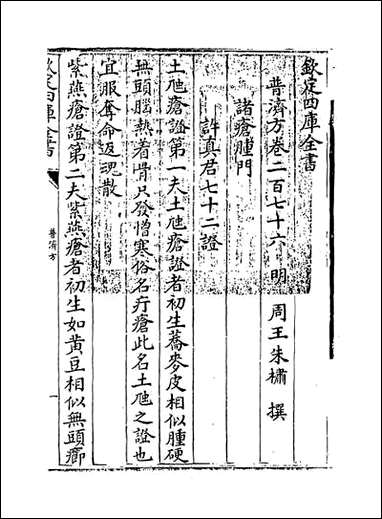 欽定四庫全書
普濟方卷二百七十六 明 周王朱橚 撰
諸瘡腫門
許真君七十二證
土虺瘡證第一夫土虺瘡證者初生蕎麥皮相似腫硬
無頭腦熱着骨尺發憎寒俗名疔瘡此名土虺之證也
宜服奪命返魂散
紫燕瘡證第二夫紫燕瘡者初生如黄豆相似無頭癤
欽定四庫全書
普濟方
一